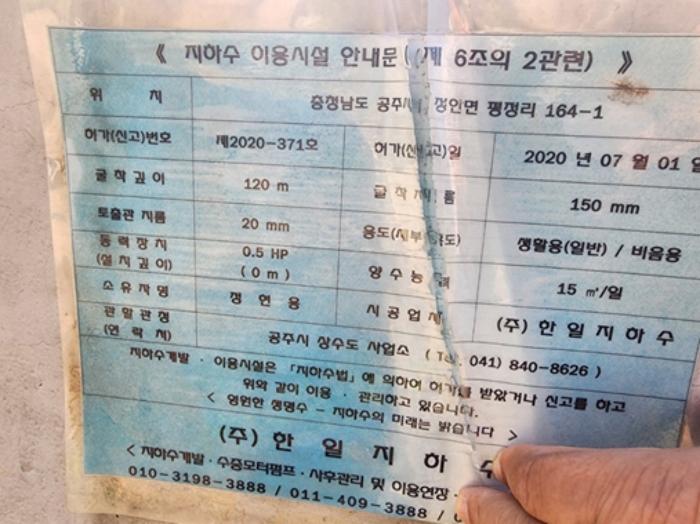 《 지하수 이용시설 안내문 (제 6조의 2관련) 》
위 치 충청남도 공주시 정안면 평정리 164-1
허가(신고)번호 제2020-371호 허가(신고)일 2020 년 07 월 01
굴착깊이 120 m 굴착지름 150 mm
토출관 지름 20 mm 용도(세부용도) 생활용(일반) / 비음용
동력장치 (설치깊이) 0.5 HP ( 0 m ) 양수능력 15 ㎥/일
소유자명 정 연 용 시공업체 (주) 한 일 지 하 수
관할관청 (연락처) 공주시 상수도 사업소 ( Tel. 041) 840-8626 )
지하수개발 · 이용시설은 「지하수법」에 의하여 허가를 받았거나 신고를 하고
위와 같이 이용 · 관리하고 있습니다.
< 영원한 생명수 - 지하수의 미래는 밝습니다 >
(주) 한 일 지 하 수
< 지하수개발 · 수중모터펌프 · 사후관리 및 이용연장 ·
010-3198-3888 / 011-409-3888 /